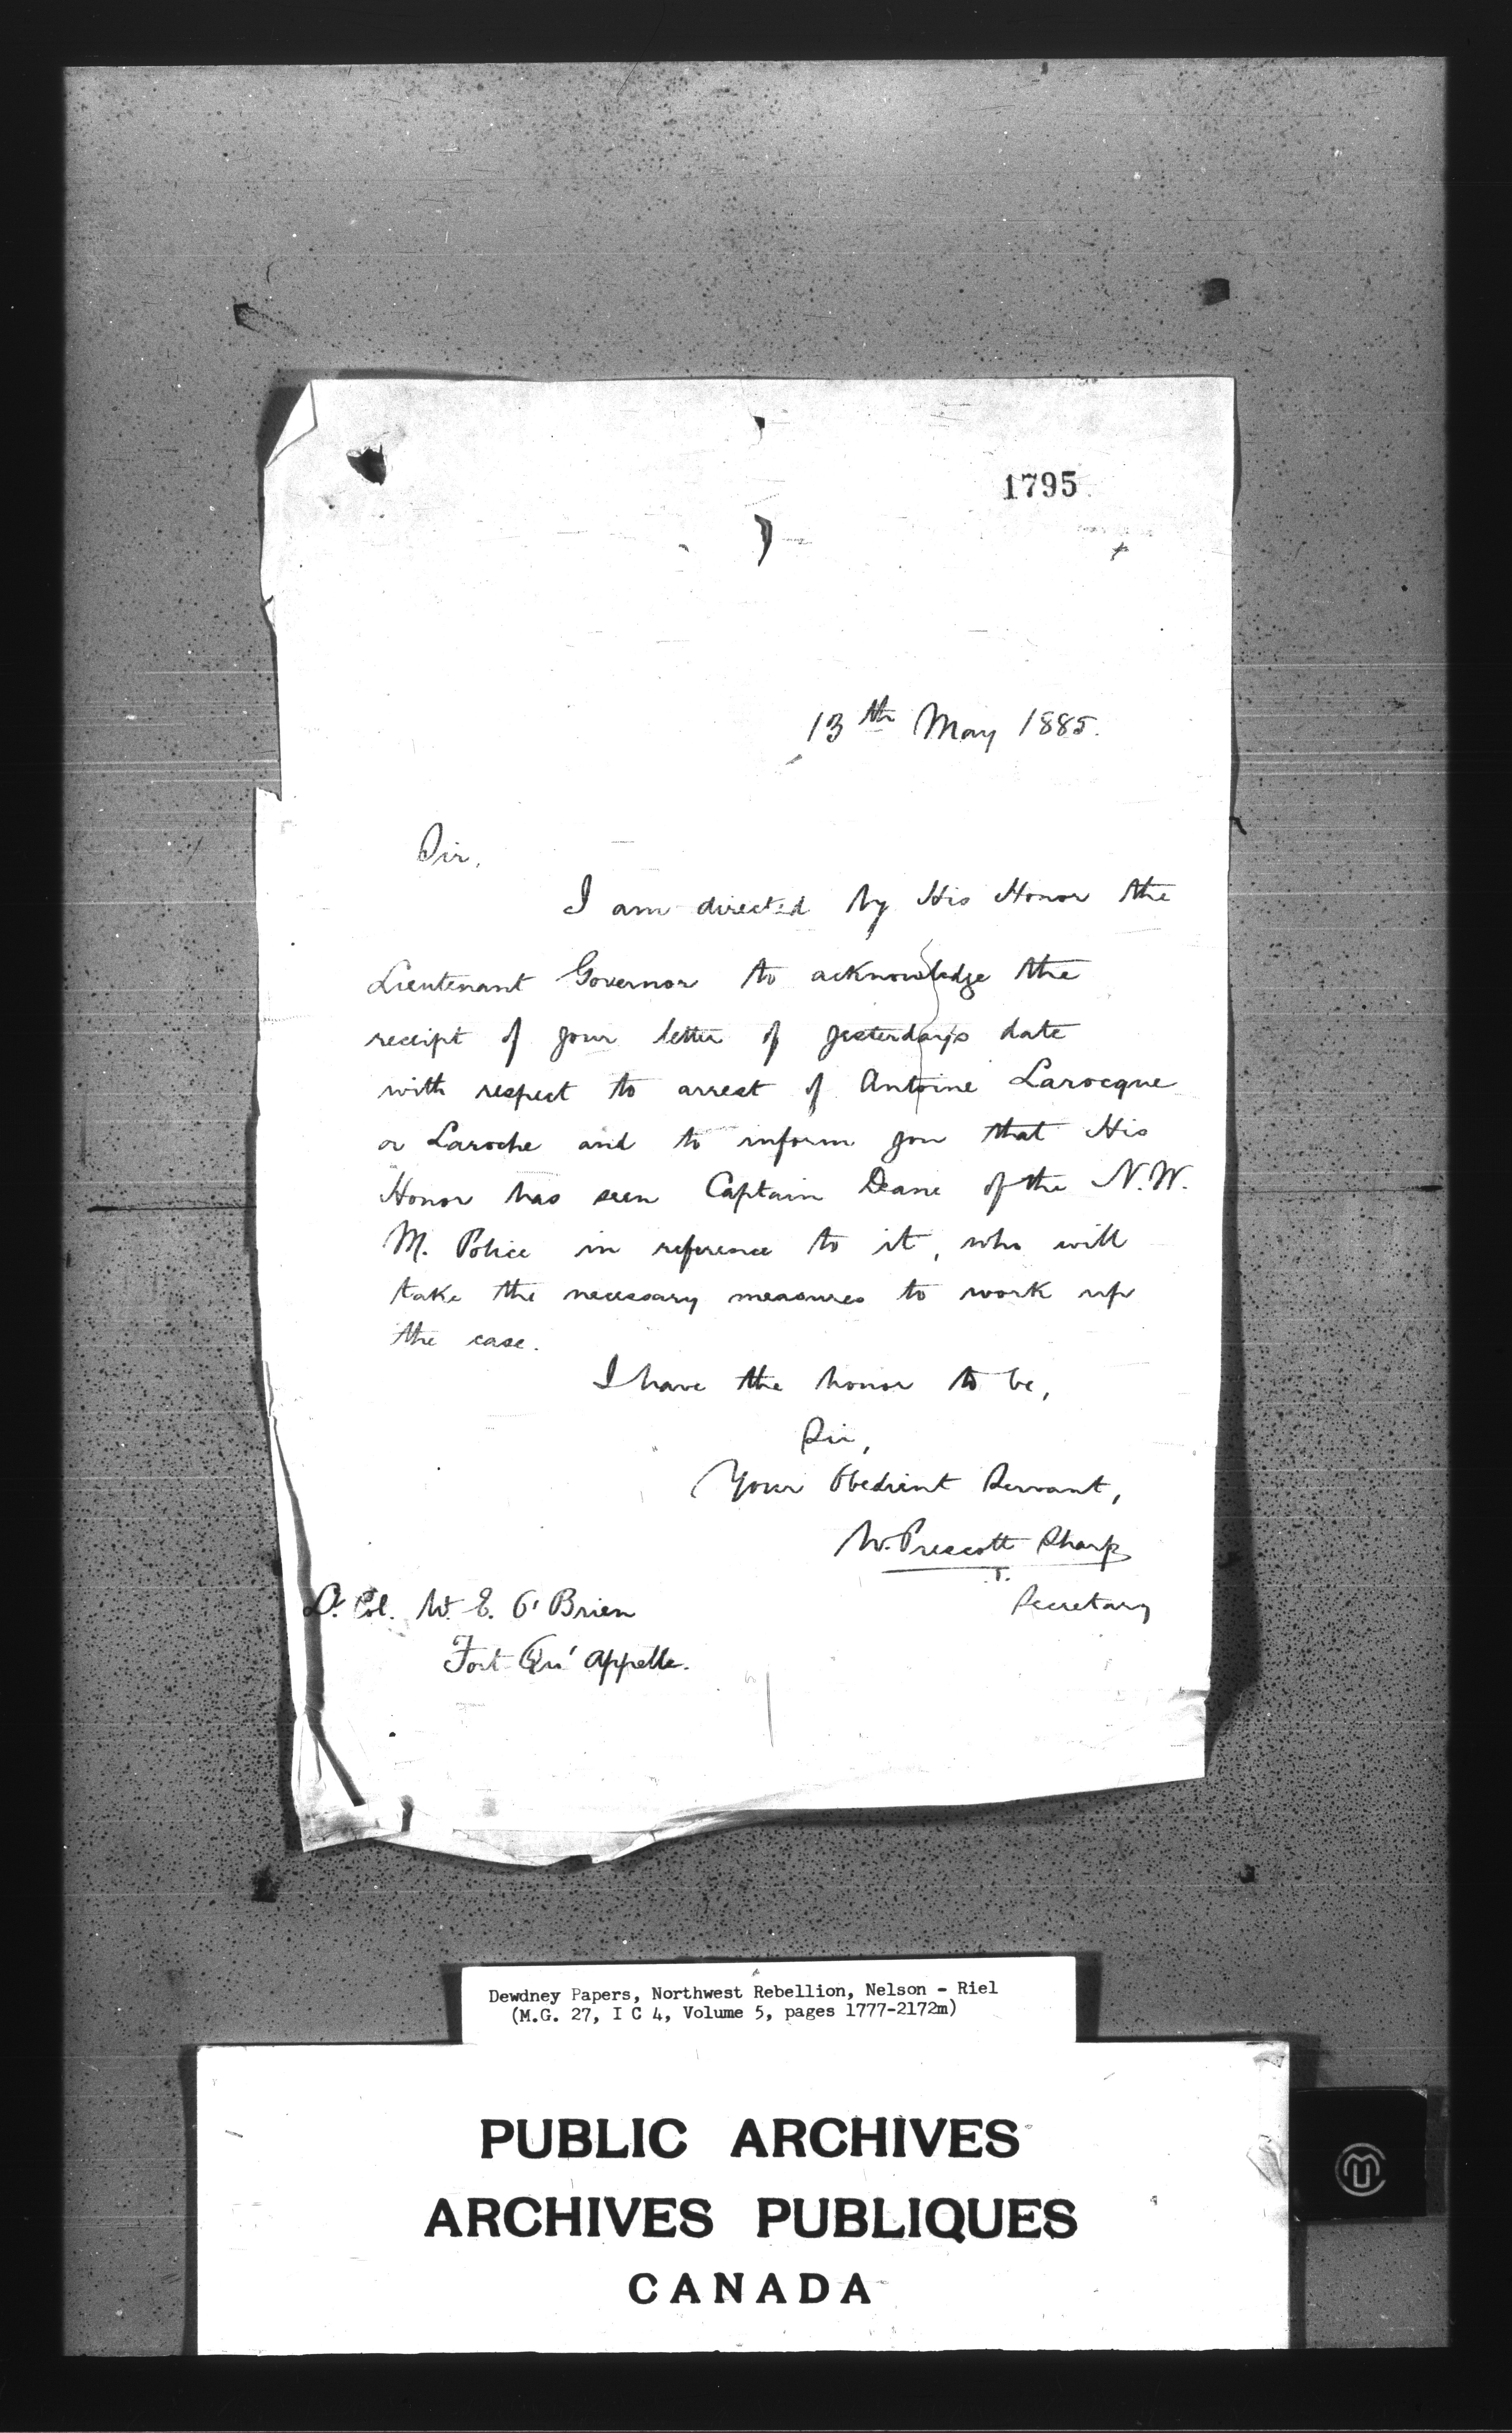 1795
13th May 1885.
Sir,
I am directed by His Honor the
Lieutenant Governor to acknowledge the
receipt of your letter of yesterday's date
with respect to arrest of Antoine Larocque
or Laroche and to inform you that His
Honor has seen Captain Deane of the N.W.
M. Police in reference to it, who will
take the necessary measures to work up
the case.
I have the honor to be,
Sir,
Your Obedient Servant,
W. Prescott Sharp
Secretary
Lt. Col. W. E. O'Brien
Fort Qu'appelle.
Dewdney Papers, Northwest Rebellion, Nelson - Riel
(M.G. 27, I C 4, Volume 5, pages 1777-2172m)
PUBLIC ARCHIVES
ARCHIVES PUBLIQUES
CANADA